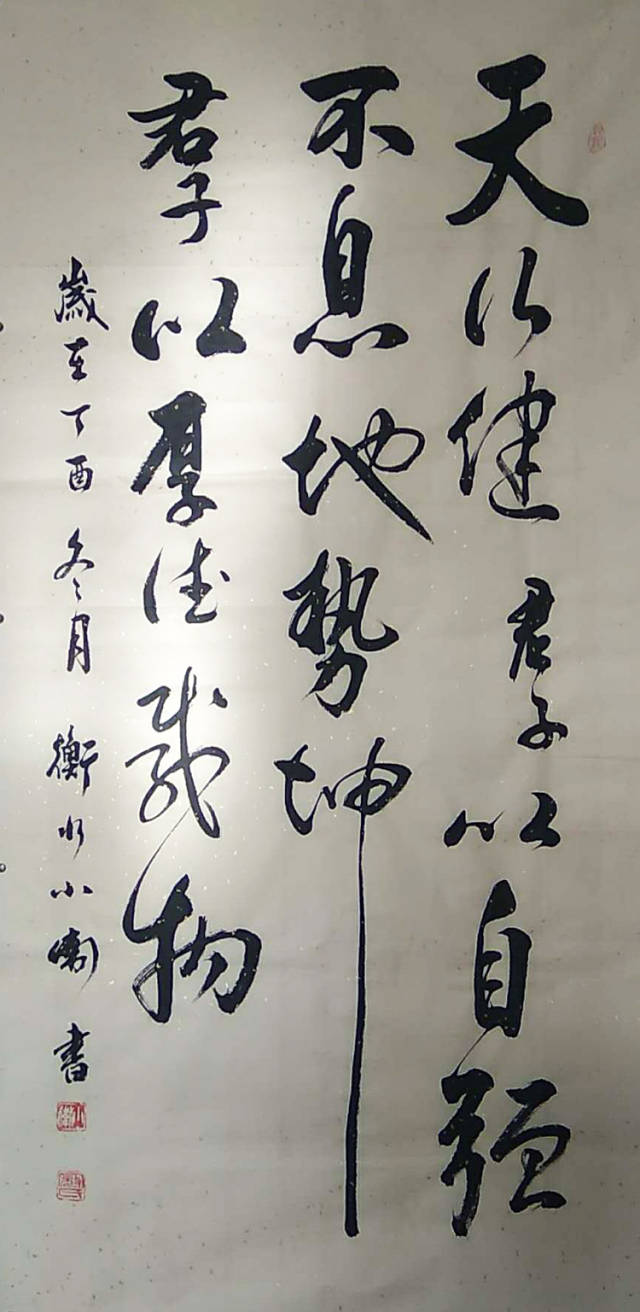 天行健君子以自强
不息地势坤
君子以厚德载物
歲在丁酉冬月衡水小刚書